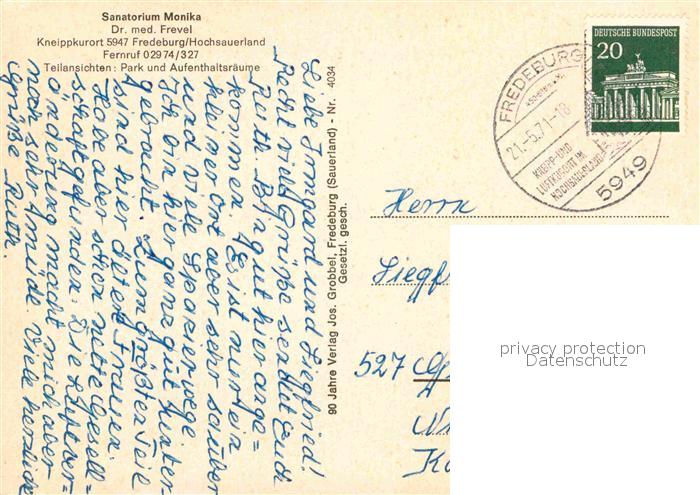 Sanatorium Monika
Dr. med. Frevel
Kneippkurort 5947 Fredeburg/Hochsauerland
Fernruf 02974/327
Teilansichten: Park und Aufenthaltsräume
Liebe Irmgard und Siegfried!
Recht viele Grüße sendet Euch
Ruth. Bin gut hier ange=
kommen. Es ist nur ein
kleiner Ort aber sehr sauber
und viele Spazierwege.
Ich bin hier ganz gut unter-
gebracht. Zum größten Teil
sind hier ältere Frauen.
Habe aber schon nette Gesell-
schaft gefunden. Die Luftver-
änderung macht mich aber
noch sehr müde. Viele herzliche
Grüße Ruth.
90 Jahre Verlag Jos. Grobbel, Fredeburg (Sauerland) - Nr. 4034
Gesetzl. gesch.
DEUTSCHE BUNDESPOST
20
FREDEBURG
21.-5.71-18
KNEIPP-UND
LUFTKURORT IM
HOCHSAUERLAND
5949
Herrn
Siegf
527
privacy protection
Datenschutz